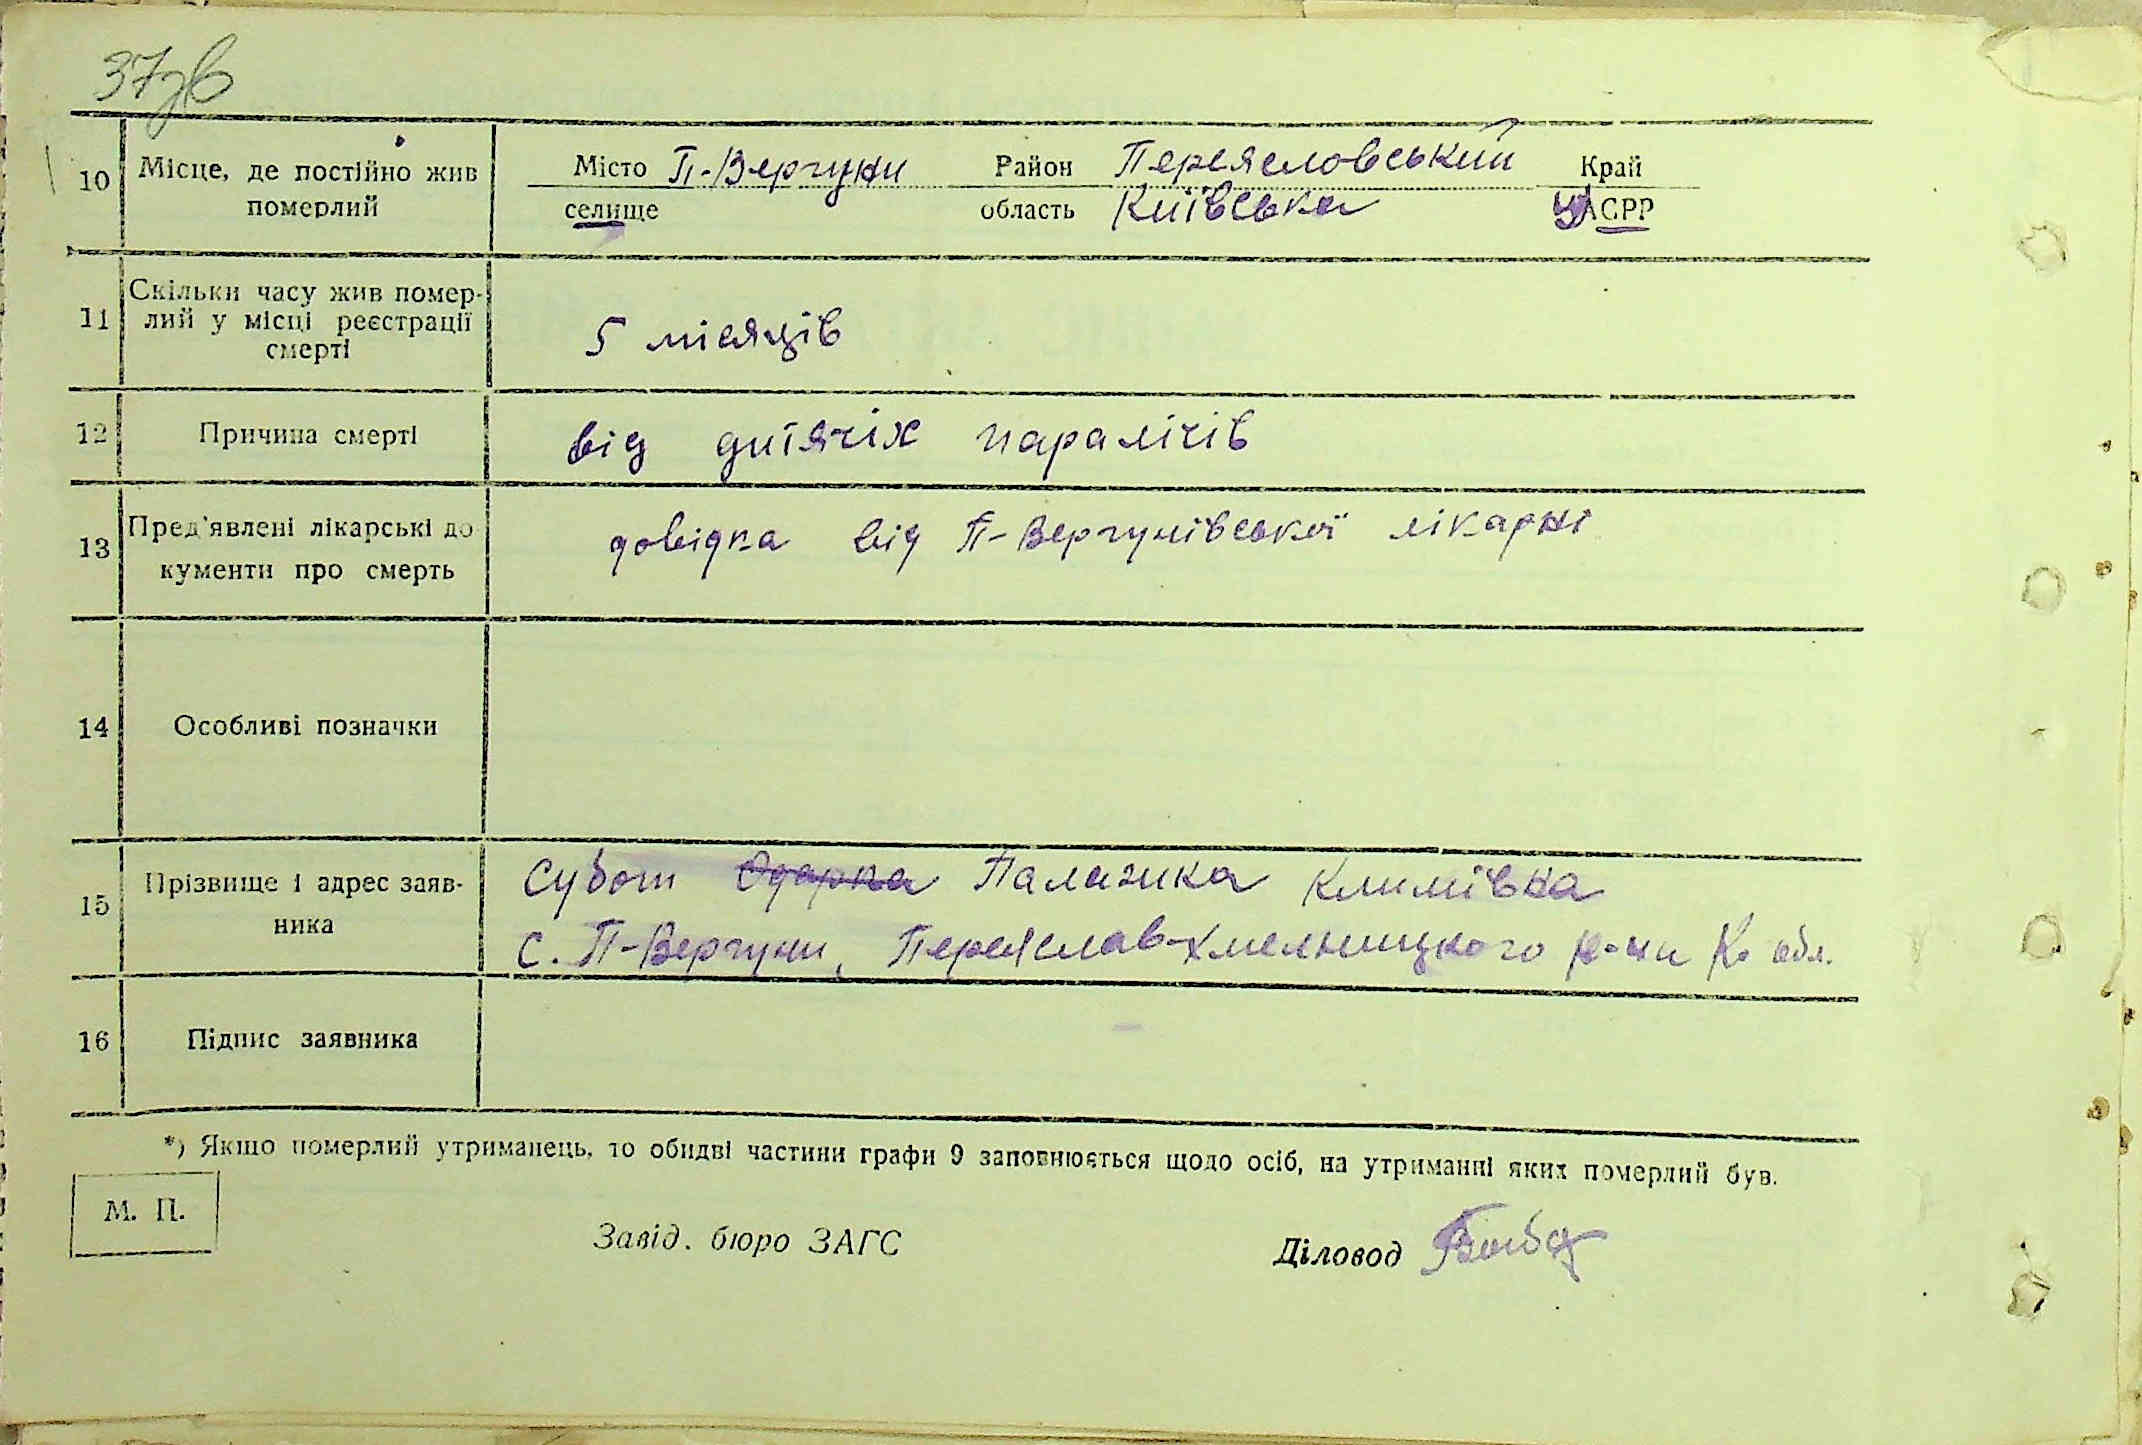 37зв
10 Місце, де постійно жив Місто П-Вергуни Район Переяславський Край
померлий селище область Київська УАСРР
11 Скільки часу жив помер-
лий у місці реєстрації 5 місяців
смерті
12 Причина смерті від дитячіх паралічів
13 Пред'явлені лікарські до довідка від П-Вергунівської лікарні
кументи про смерть
14 Особливі позначки
15 Прізвище і адрес заяв- Субот Одарка Палажка Климівна
ника с. П-Вергуни, Переяслав-Хмельницкого р-ни К. обл.
16 Підпис заявника
*) Якщо померлий утриманець, то обидві частини графи 9 заповнюється щодо осіб, на утриманні яких померлий був.
М. П.
Завід. бюро ЗАГС Діловод